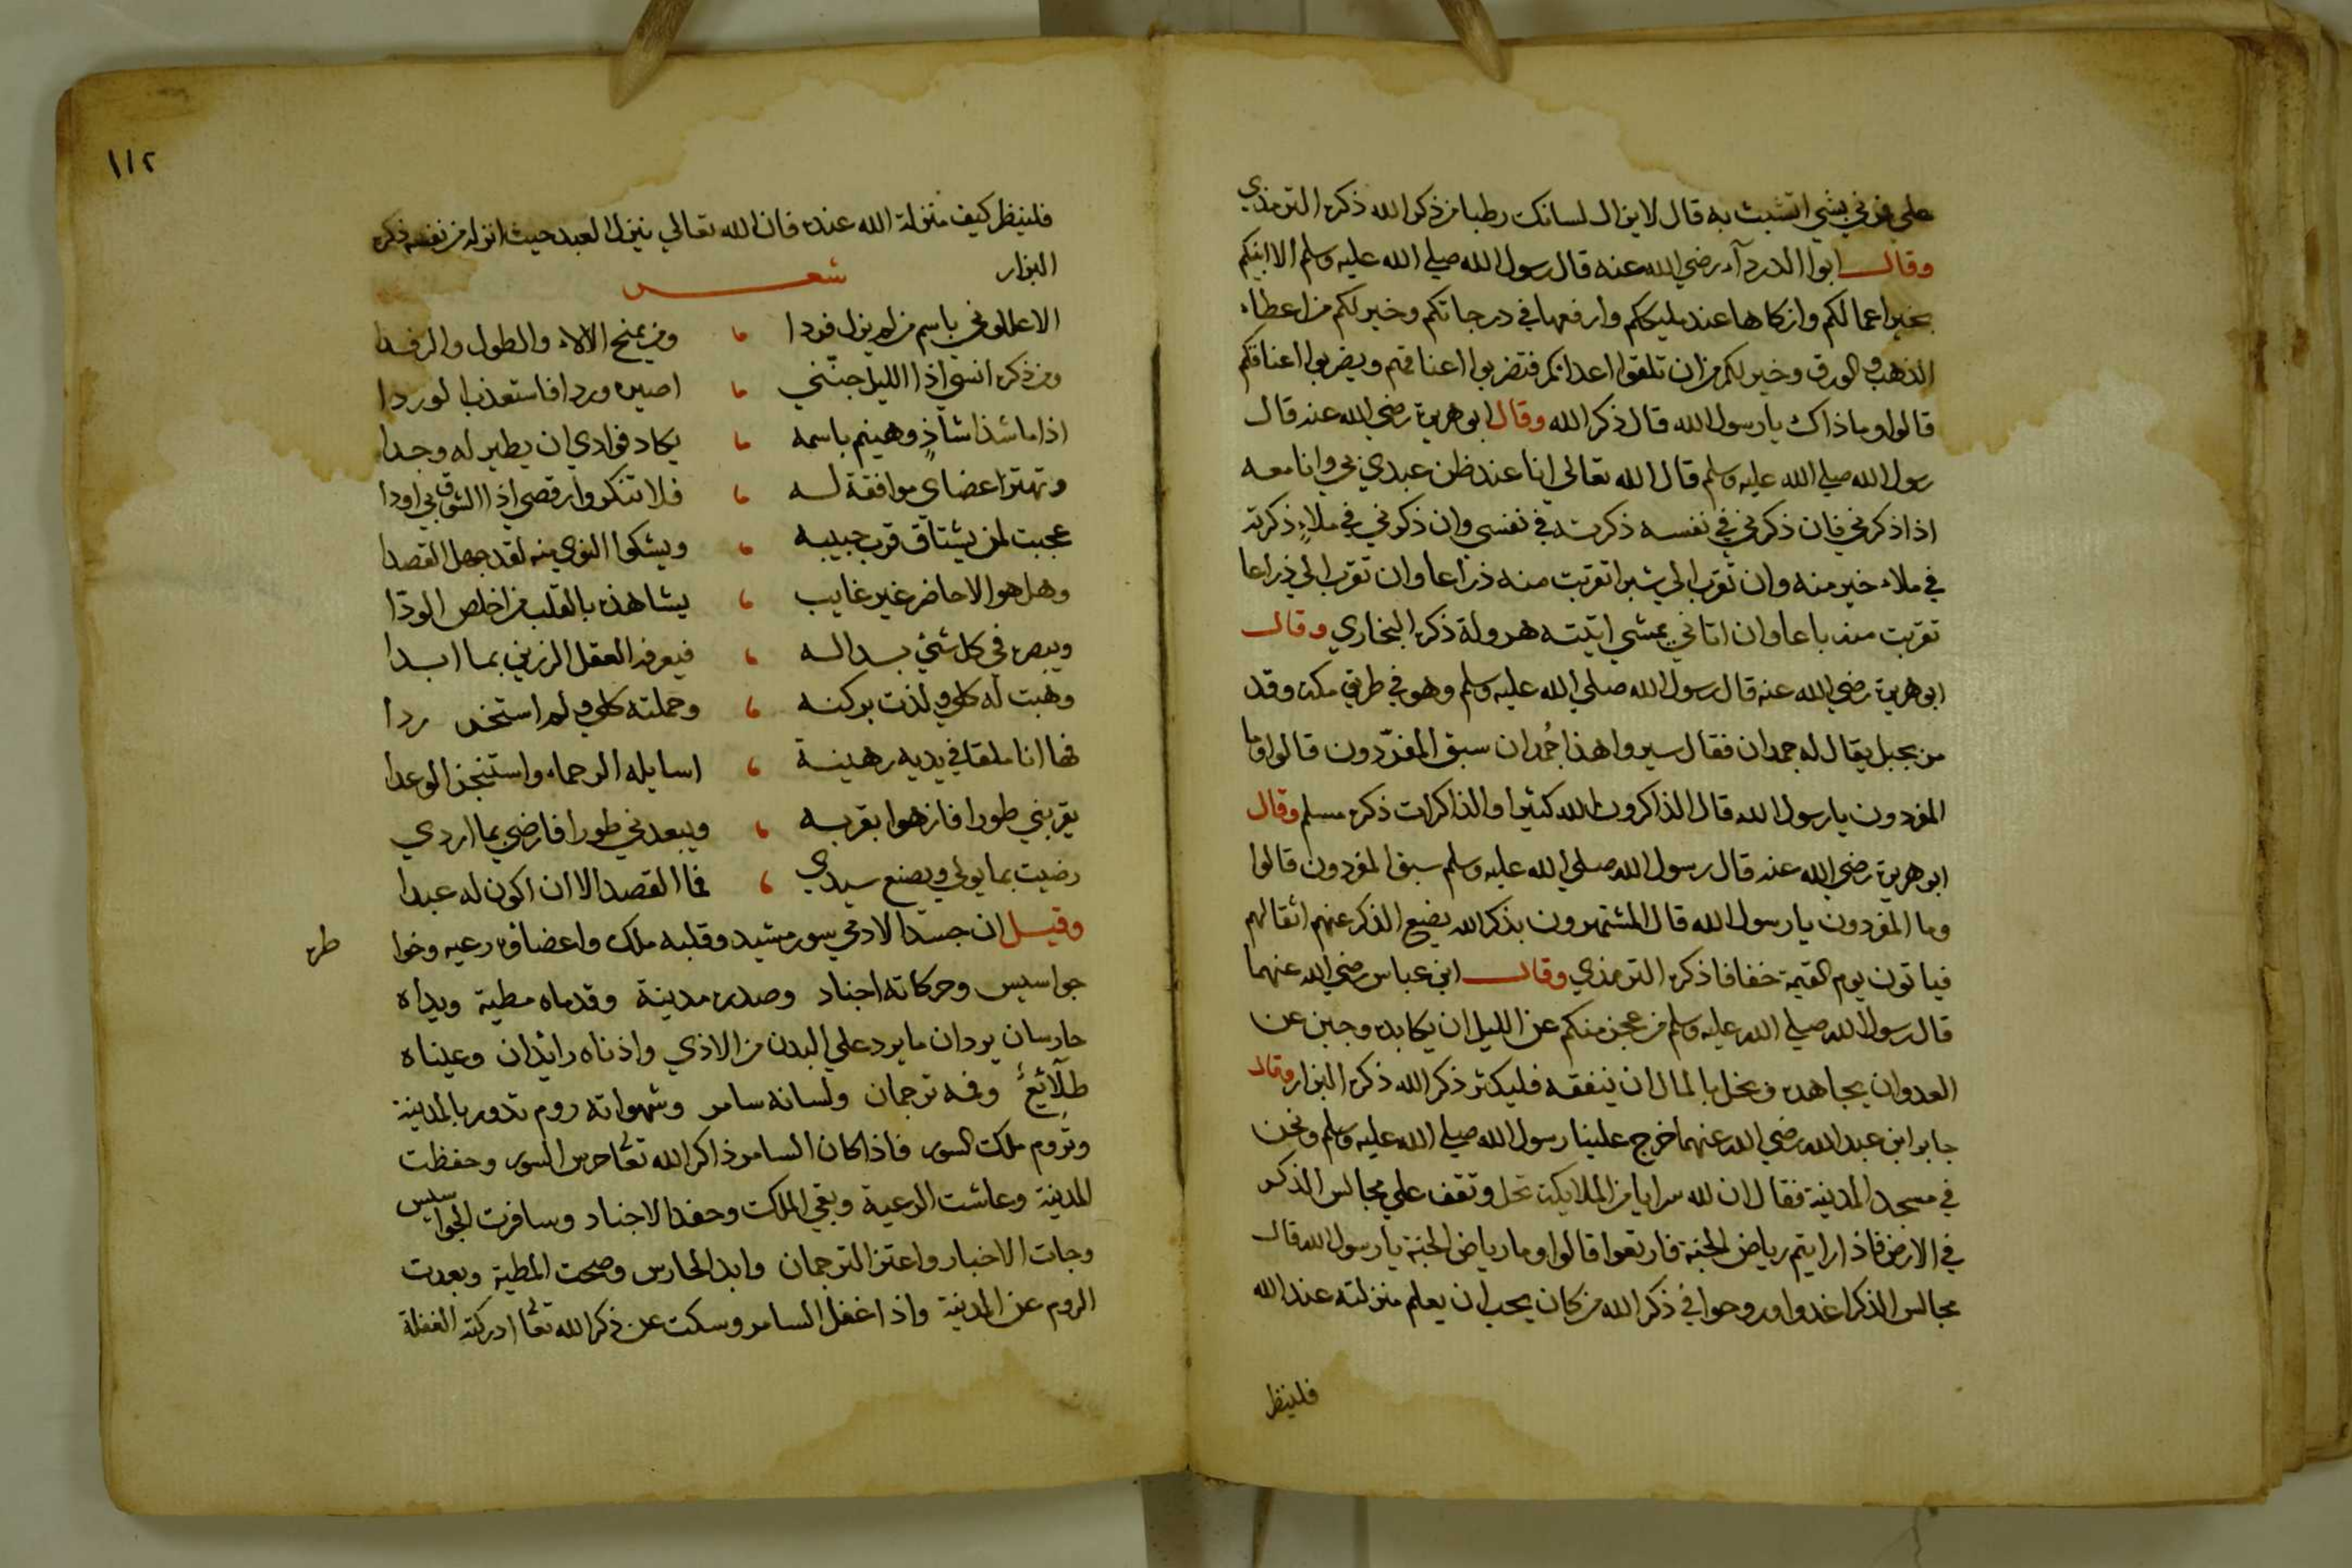 علي فمرني بشي اتشبث به قال لايزال لسانك رطبا من ذكر الله ذكره الترمذي
وقال ابوا الدردآء رضي الله عنه قال رسول الله صلي الله عليه وسلم الا انبيكم
بخير اعمالكم وازكاها عند مليككم وارفعها في درجاتكم وخير لكم من اعطاء
الذهب والورق وخير لكم من ان تلقوا اعداكم فتضربوا اعناقهم ويضربوا اعناقكم
قالوا وما ذاك يا رسول الله قال ذكر الله وقال ابو هريرة رضي الله عنه قال
رسول الله صلي الله عليه وسلم قال الله تعالي انا عند ظن عبدي بي وانا معه
اذا ذكرني فان ذكرني في نفسه ذكرته في نفسي وان ذكرني في ملاءٍ ذكرته
في ملاء خير منه وان تقرب الي شبرا تقربت منه ذراعا وان تقرب الي ذراعا
تقربت منه باعا وان اتاني يمشي اتيته هرولة ذكره البخاري وقال
ابو هريرة رضي الله عنه قال رسول الله صلي الله عليه وسلم وهو في طريق مكة وقد
مر بجبل يقال له جمدان فقال سيروا هذا جُمدان سبق المفرّدون قالوا وما
المفردون يا رسول الله قال الذاكرون الله كثيرا والذاكرات ذكره مسلم وقال
ابو هريرة رضي الله عنه قال رسول الله صلي الله عليه وسلم سبق المفردون قالوا
وما المفردون يا رسول الله قال المشتهرون بذكر الله يضع الذكر عنهم اثقالهم
فياتون يوم القيمة خفافا ذكره الترمذي وقال ابن عباس رضي الله عنهما
قال رسول الله صلي الله عليه وسلم من عجز منكم عن الليل ان يكابده وجبن عن
العدو ان يجاهده وبخل بالمال ان ينفقه فليكثر ذكر الله ذكره البزار وقال
جابر ابن عبد الله رضي الله عنهما خرج علينا رسول الله صلي الله عليه وسلم ونحن
في مسجد المدينة فقال ان لله سرايا من الملايكة تحل وتقف علي مجالس الذكر
في الارض فاذا رايتم رياض الجنة فارتعوا قالوا وما رياض الجنة يا رسول الله قال
مجالس الذكر اغدوا وروحوا في ذكر الله من كان يحب ان يعلم منزلته عند الله
فلينظر
١١٢
فلينظر كيف منزلة الله عنده فان الله تعالي ينزل العبد حيث انزله من نفسه ذكره
البزار شعر
الا عللوني باسم من لم يزل فردا ومن يمنح الالاء والطول والرفدا
ومن ذكره انسي اذا الليل جنّني اصيره وردا فاستعذب الوردا
اذا ما شذا شاذٍ وهينم باسمه يكاد فوادي ان يطير له وجدا
وتهتز اعضاي موافقة له فلا تنكروا رقصي اذا الشوق بي اودا
عجبت لمن يشتاق قرب حبيبه ويشكوا النوي منه لقد جهل القصدا
وهل هو الا حاضر غير غايب يشاهده بالقلب من اخلص الودّا
ويبصره في كل شئ بدا له فيعرفه العقل الرزين بما ابدا
وهبت له كلي ولذت بركنه وحملته كلي ولم استخر ردا
فها انا ملقا في يديه رهينة اسايله الرحماء واستنجز الوعدا
يقربني طورا فازهوا بقربه ويبعدني طورا فارضي بما اردي
رضيت بما يولي ويصنع سيدي فما القصد الا ان اكون له عبدا
وقيل ان جسد الادمي سور مشيد وقلبه ملك واعضاوه رعيه وخوا
طره
جواسيس وحركاته اجناد وصدره مدينة وقدماه مطية ويداه
حارسان يردان ما يرد علي البدن من الاذي واذناه رايدان وعيناه
طلآئعُ وفمه ترجمان ولسانه سامر وشهواته روم تدور بالمدينة
وتروم ملك السور فاذا كان السامر ذاكر الله تعالي حرس السور وحفظت
المدينة وعاشت الرعية وبقي الملك وحفد الاجناد وسافرت الجواسيس
وجات الاخبار واعتز الترجمان وابد الحارس وصحت المطية وبعدت
الروم عن المدينة واذا غفل السامر وسكت عن ذكر الله تعالي ادركته الغفلة